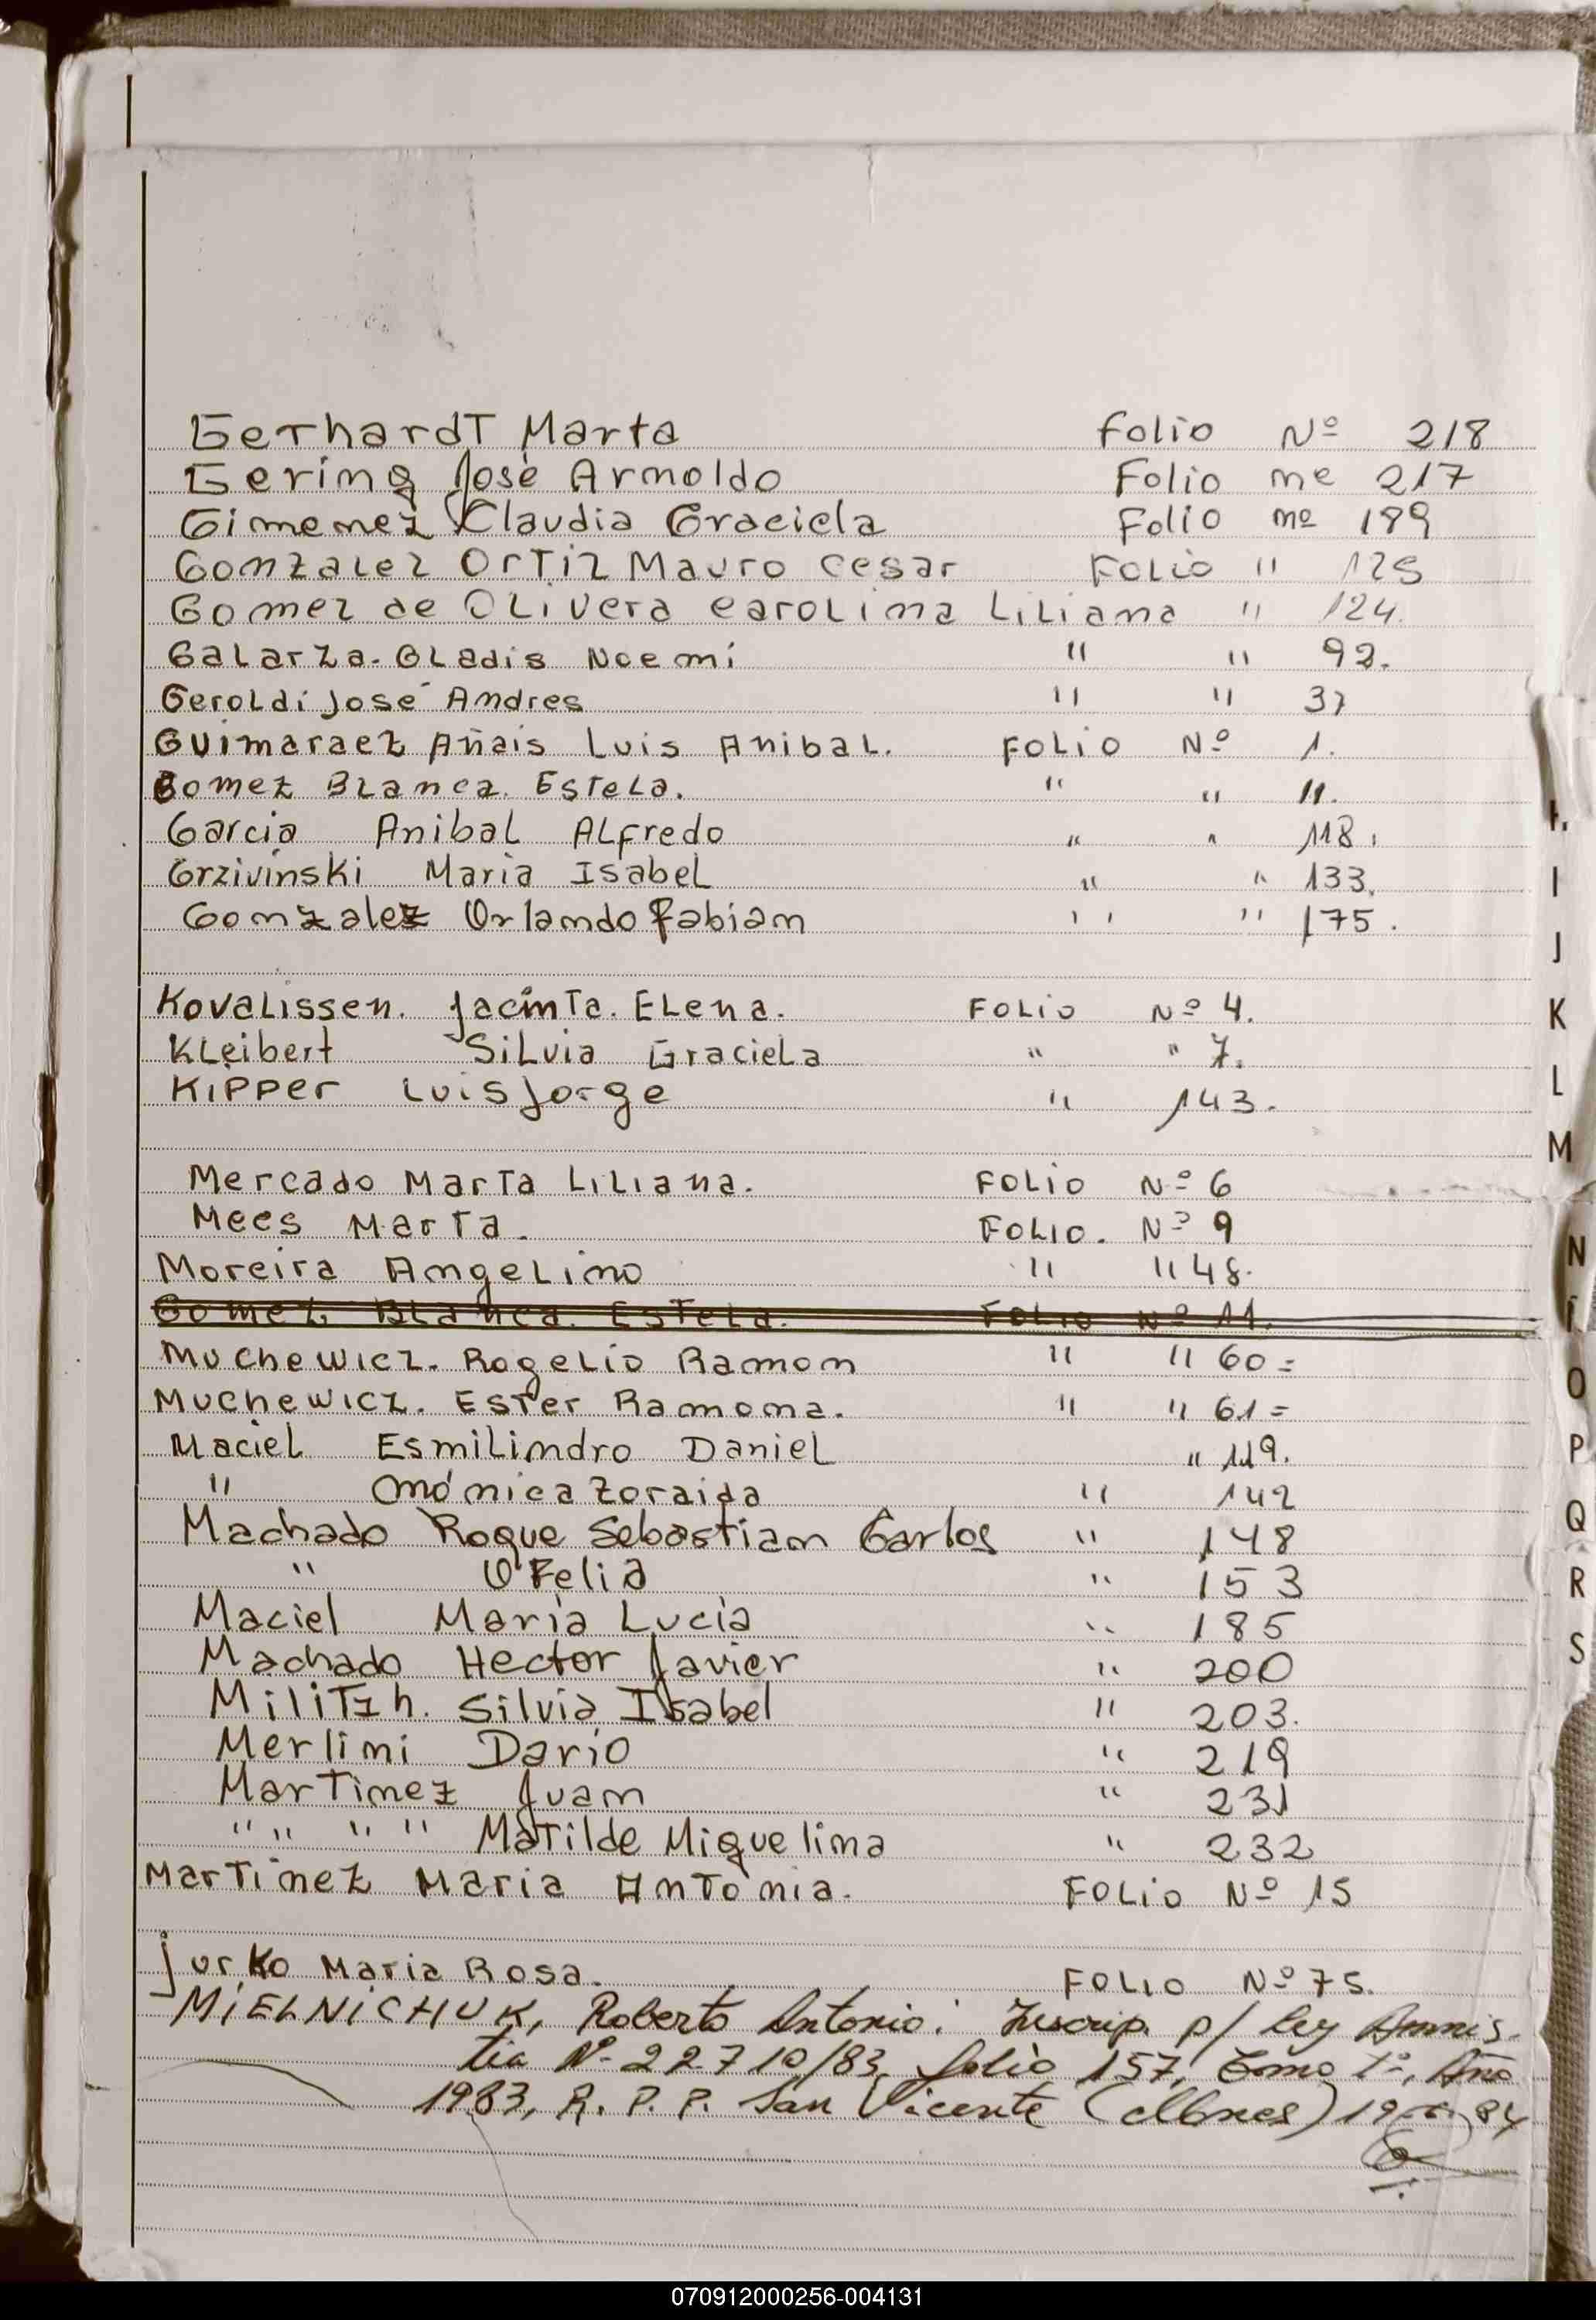 Gerhardt Marta Folio Nº 218
Gering José Arnoldo Folio nº 217
Gimenez Claudia Graciela Folio nº 189
Gonzalez Ortiz Mauro Cesar Folio " 125
Gomez de Olivera Carolina Liliana " 124.
Galarza. Gladis Noemi " " 92.
Geroldi José Andres " " 37
Guimaraez Añais Luis Anibal. Folio Nº 1.
Gomez Blanca. Estela. " " 11.
Garcia Anibal Alfredo " " 118.
Grzivinski Maria Isabel " " 133.
Gonzalez Orlando Fabian " " 175.
Kovalissen. Jacinta. Elena. Folio Nº 4.
Kleibert Silvia Graciela " " 7.
Kipper Luis Jorge " 143.
Mercado Marta Liliana. Folio Nº 6
Mees Marta. Folio. Nº 9
Moreira Angelino " " 48.
Gomez Blanca. Estela. Folio Nº 11.
Muchewicz. Rogelio Ramon " " 60=
Muchewicz. Ester Ramona. " " 61=
Maciel Esmilindro Daniel " 119.
" Mónica Zoraida " 142
Machado Roque Sebastian Carlos " 148
" Ofelia " 153
Maciel Maria Lucia " 185
Machado Hector Javier " 200
Militzh. Silvia Isabel " 203.
Merlini Dario " 219
Martinez Juan " 231
" " " " Matilde Miquelina " 232
Martinez Maria Antonia. Folio Nº 15
Jurko Maria Rosa. Folio Nº 75.
MIELNICHUK, Roberto Antonio: Inscrip. p/ Ley Amnis-
tia Nº 22.710/83, folio 157, Tomo 1º, Año
1983, R. P. P. San Vicente (Mnes) 84
I
J
K
L
M
N
O
P
Q
R
S
070912000256-004131